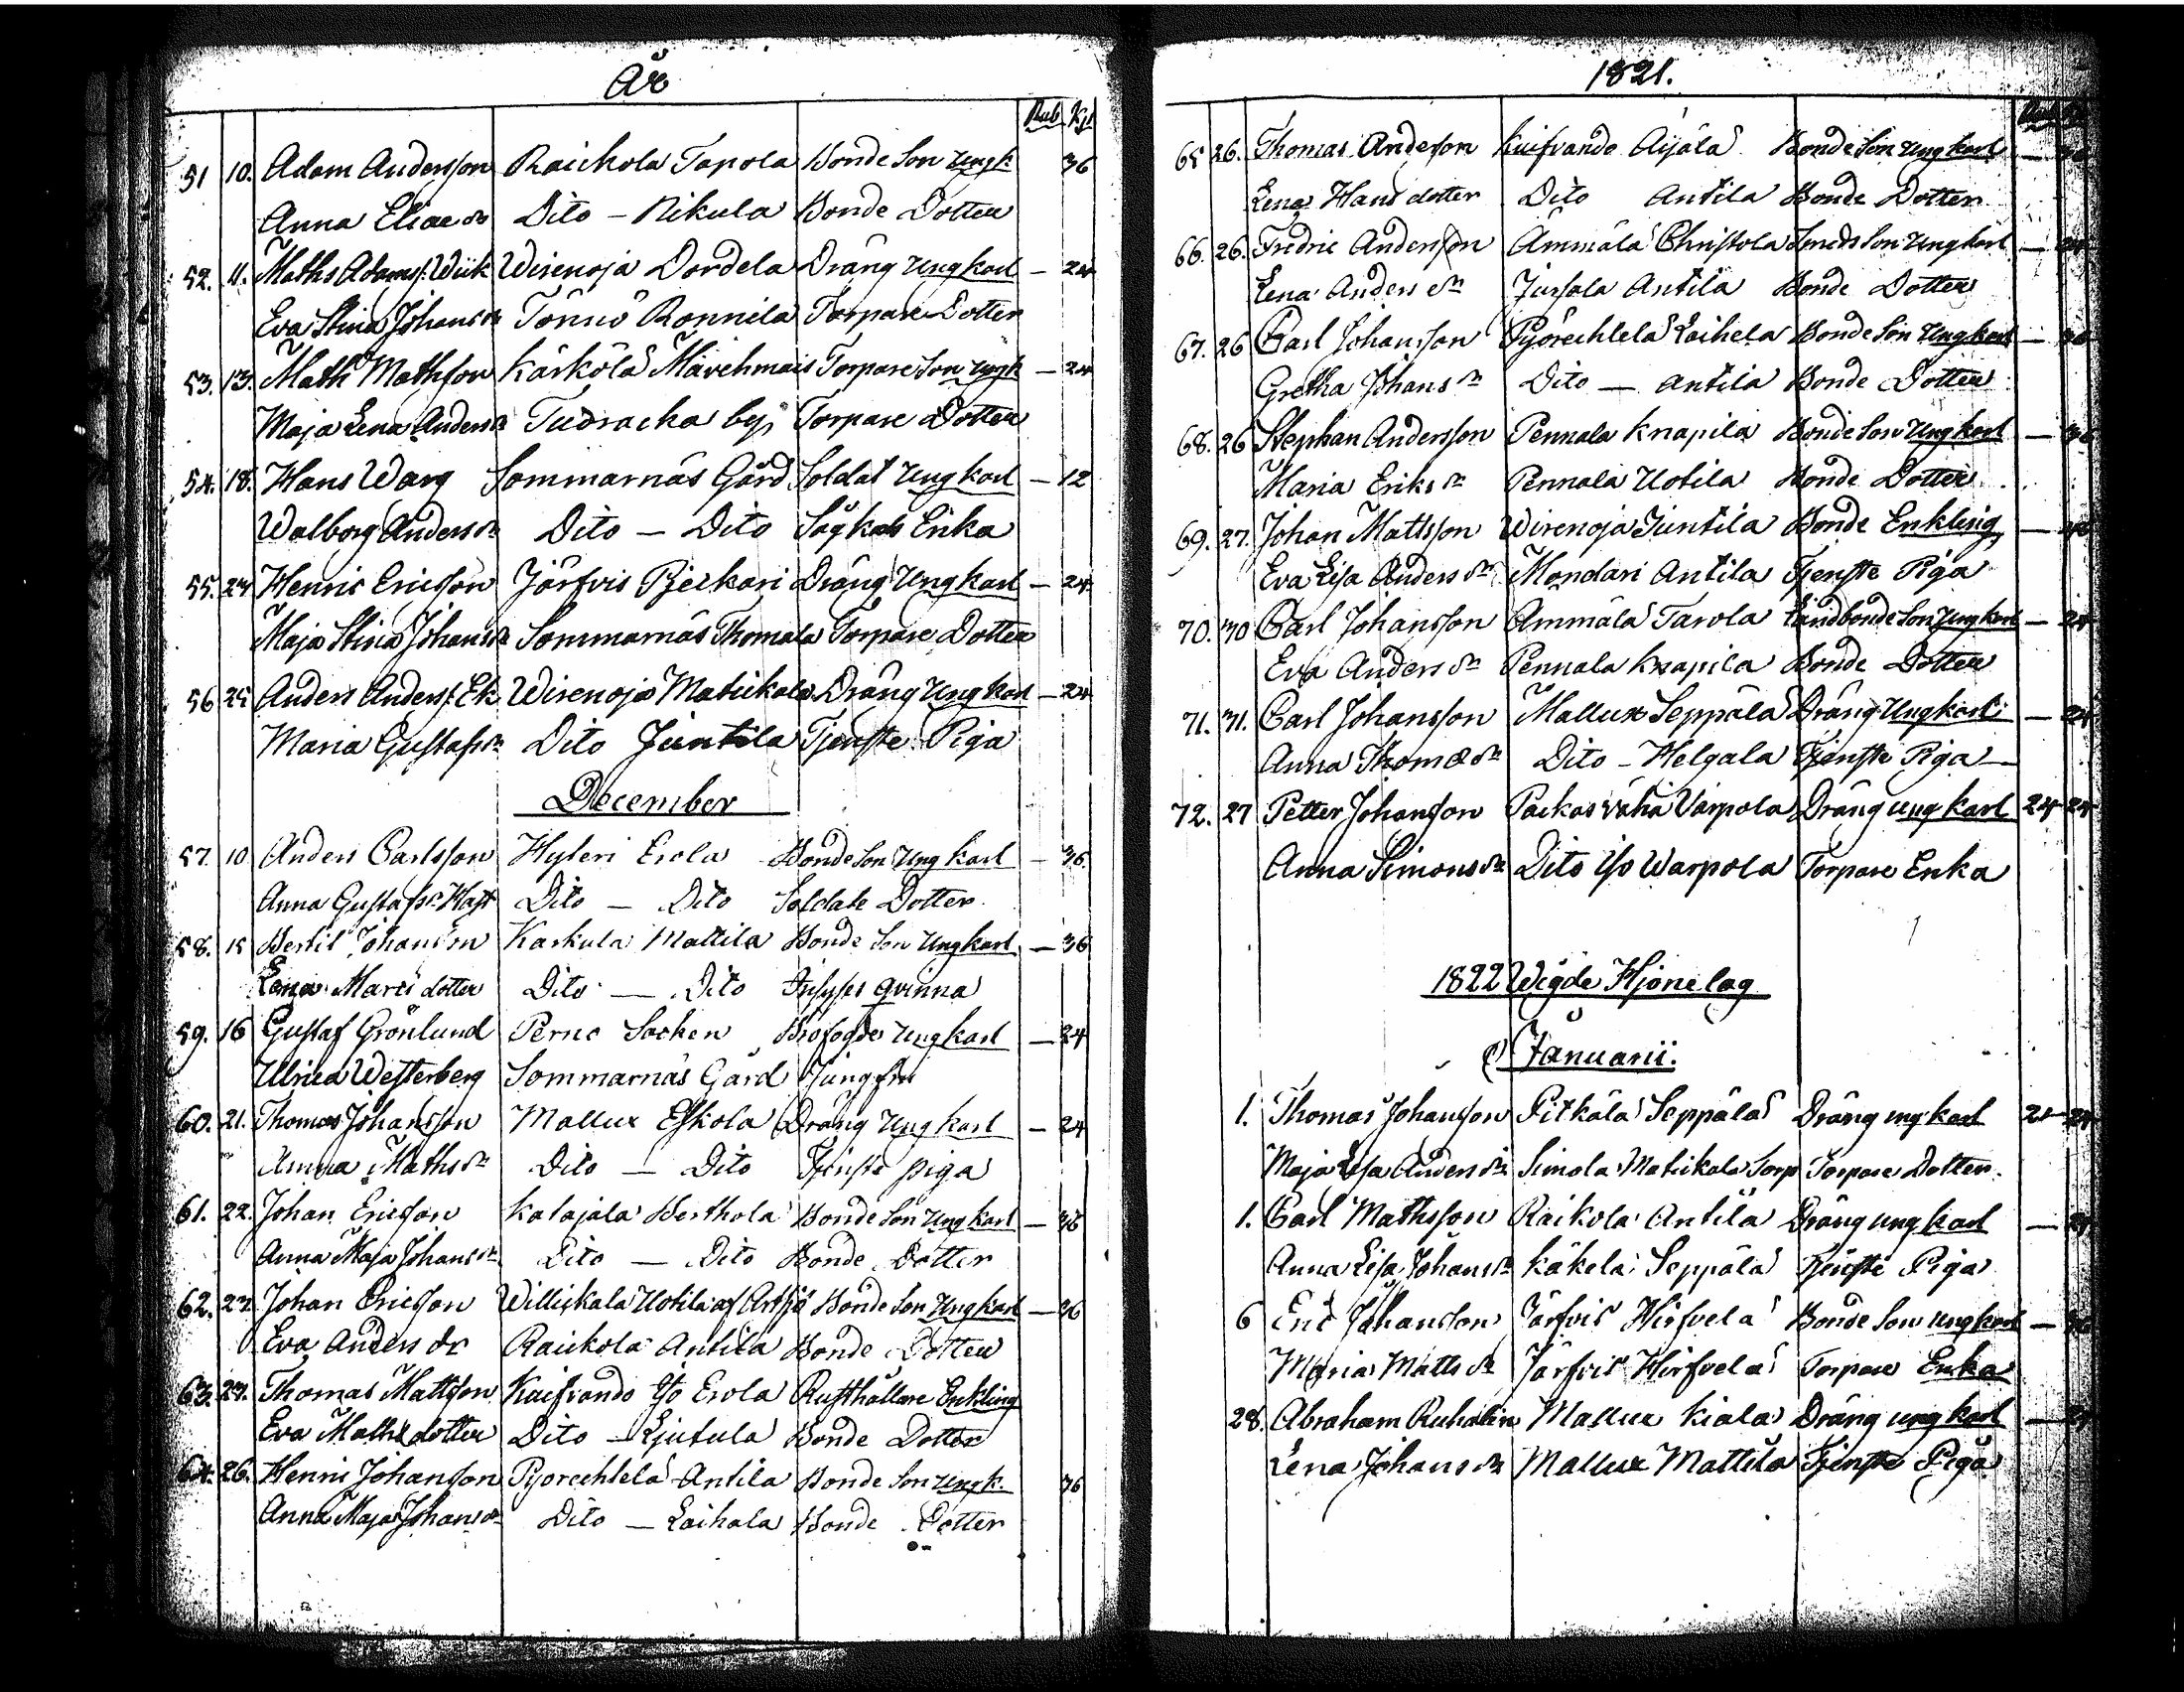 År
Rub. Kp
51 10. Adam Andersson Raickola Tapola Bonde Son Ungk 36
Anna Eliæ dr Dito - Nikula Bonde Dotter
52. 11. Maths Adamss. Wiik Wirenoja Dordela Dräng Ung karl - 24
Eva Stina Johans dr Tönnö Ronnila Torpare Dotter
53. 13. Math Mathson Kärkölä Torpare Son ungk - 24
Maja Lena Anders dr by, Torpare Dotter
54. 18. Hans Warg Sommarnäs Gård Soldat Ung karl - 12
Walborg Anders dr Dito - Dito Enka
55. 24 Henric Ericsson Järfvis Dräng Ung karl - 24
Maja Stina Johans dr Sommarnäs Thomala Torpare Dotter
56 25 Anders Anderss. Ek Wirenoja Matickala Dräng Ung karl - 24
Maria Gustafs dr Dito Juntila Tjenste Piga
December
57. 10 Anders Carlsson Hyteri Erola Bonde Son Ung karl - 36.
Anna Gustafs dr Dito - Dito Soldats Dotter.
58. 15 Bertil Johansson Karkula Mattila Bonde Son Ung karl - 36
Lena Marts dotter Dito - Dito Inhyses qvinna
59. 16 Gustaf Grönlund Perno Socken Ung karl - 24
Ulrica Westerberg Sommarnäs Gård Jungfru
60. 21. Thomas Johansson Mallux Eskola Dräng Ung karl - 24
Anna Maths dr Dito - Dito Tjenste piga
61. 22. Johan Ericsson Katajala Berthola Bonde Son Ung karl - 36
Anna Maja Johans dr Dito - Dito Bonde Dotter
62. 23. Johan Ericsson Willickala Uotila af Artsjö Bonde Son Ung karl - 36
Eva Anders dr Raickola Antila Bonde Dotter
63. 23. Thomas Mattsson Kuifvando Yso Erola Rusthållare Enkling
Eva Maths dotter Dito - Bonde Dotter
64. 26. Henric Johansson Pyörechtelä Antila Bonde Son Ungk. 36
Anna Maja Johans dr Dito - Laihala Bonde Dotter
1821.
65 26. Thomas Andersson Kuifvando Äijälä Bonde Son Ung karl - 36
Lena Hans dotter Dito Antila Bonde Dotter
66. 26. Fredric Andersson Ämmälä Christola Smeds Son Ung karl - 24
Lena Anders dr Jursala Antila Bonde Dotter
67. 26 Carl Johansson Pyörechtelä Laihela Bonde Son Ung karl - 36
Gretha Johans dr Dito - Antila Bonde Dotter
68. 26 Stephan Andersson Pennala Knapila Bonde Son Ung karl - 36
Maria Eriks dr Pennala Uotila Bonde Dotter
69. 27. Johan Mattsson Wirenoja Juntila Bonde Enkling -
Eva Lisa Anders dr Möndari Antila Tjenste Piga
70. 30 Carl Johansson Ämmälä Tarola Landbonde Son Ung karl - 24
Eva Anders dr Pennala Knapila Bonde Dotter
71. 31. Carl Johansson Mallux Seppälä Dräng Ung karl - 24
Anna Thomæ dr Dito - Helgala Tjenste Piga
72. 27 Petter Johansson Packas vähä Varpola Dräng ung karl 24 24
Anna Simons dr Dito Yso Warpola Torpare Enka
1822 Wigde Hjonelag
Januarii.
1. Thomas Johansson Pitkälä Seppälä Dräng ung karl 24 24
Maja Lisa Anders dr Simola Matickala Torp Torpare Dotter.
1. Carl Mathsson Raikola Antila Dräng ung karl - 24
Anna Lisa Johans dr Käkelä Seppälä Tjenste Piga
6 Eric Johansson Järfvis Hirfvelä Bonde Son ung karl - 36
Maria Matts dr Järfvis Hirfvelä Torpare Enka
28. Abraham Mallux Kiala Dräng ung karl - 24
Lena Johans dr Mallux Mattila Tjenste Piga